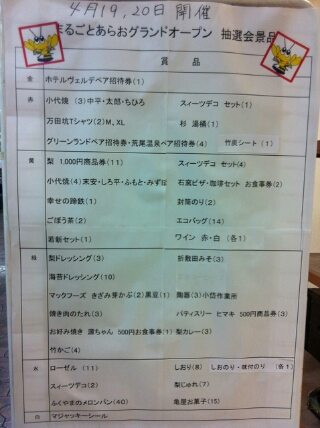 4月19,20日 開催
まるごとあらおグランドオープン 抽選会景品
賞 品
金 ホテルヴェルデペア招待券(1)
赤 小代焼 (3)中平・太郎・ちひろ スィーツデコ セット(1)
万田坑Tシャツ(2)M、XL 杉 湯桶(1)
グリーンランドペア招待券・荒尾温泉ペア招待券(4) 竹炭シート(1)
黄 梨 1,000円商品券(11) スィーツデコ セット(4)
小代焼(4)末安・しろ平・ふもと・みずほ 石窯ピザ・珈琲セット お食事券(2)
幸せの蹄鉄(1) 封筒のり(2)
ごぼう茶(2) エコバッグ(14)
若彰セット(1) ワイン 赤・白 (各1)
梨ドレッシング(3) 折敷田みそ(3)
海苔ドレッシング(10)
マックフーズ きざみ芽かぶ(2)黒豆(1) 陶器(3)小坊作業所
焼き肉のたれ(3) パティスリー ヒマキ 500円商品券(3)
お好み焼き 源ちゃん 500円お食事券(1) 梨カレー(3)
竹かご(4)
水 ローゼル (11) しおり(8) しおのり・味付のり (各1)
スィーツデコ(2) 梨じゅれ(7)
ふくやまのメロンパン(40) 亀屋お菓子(15)
白 マジャッキーシール